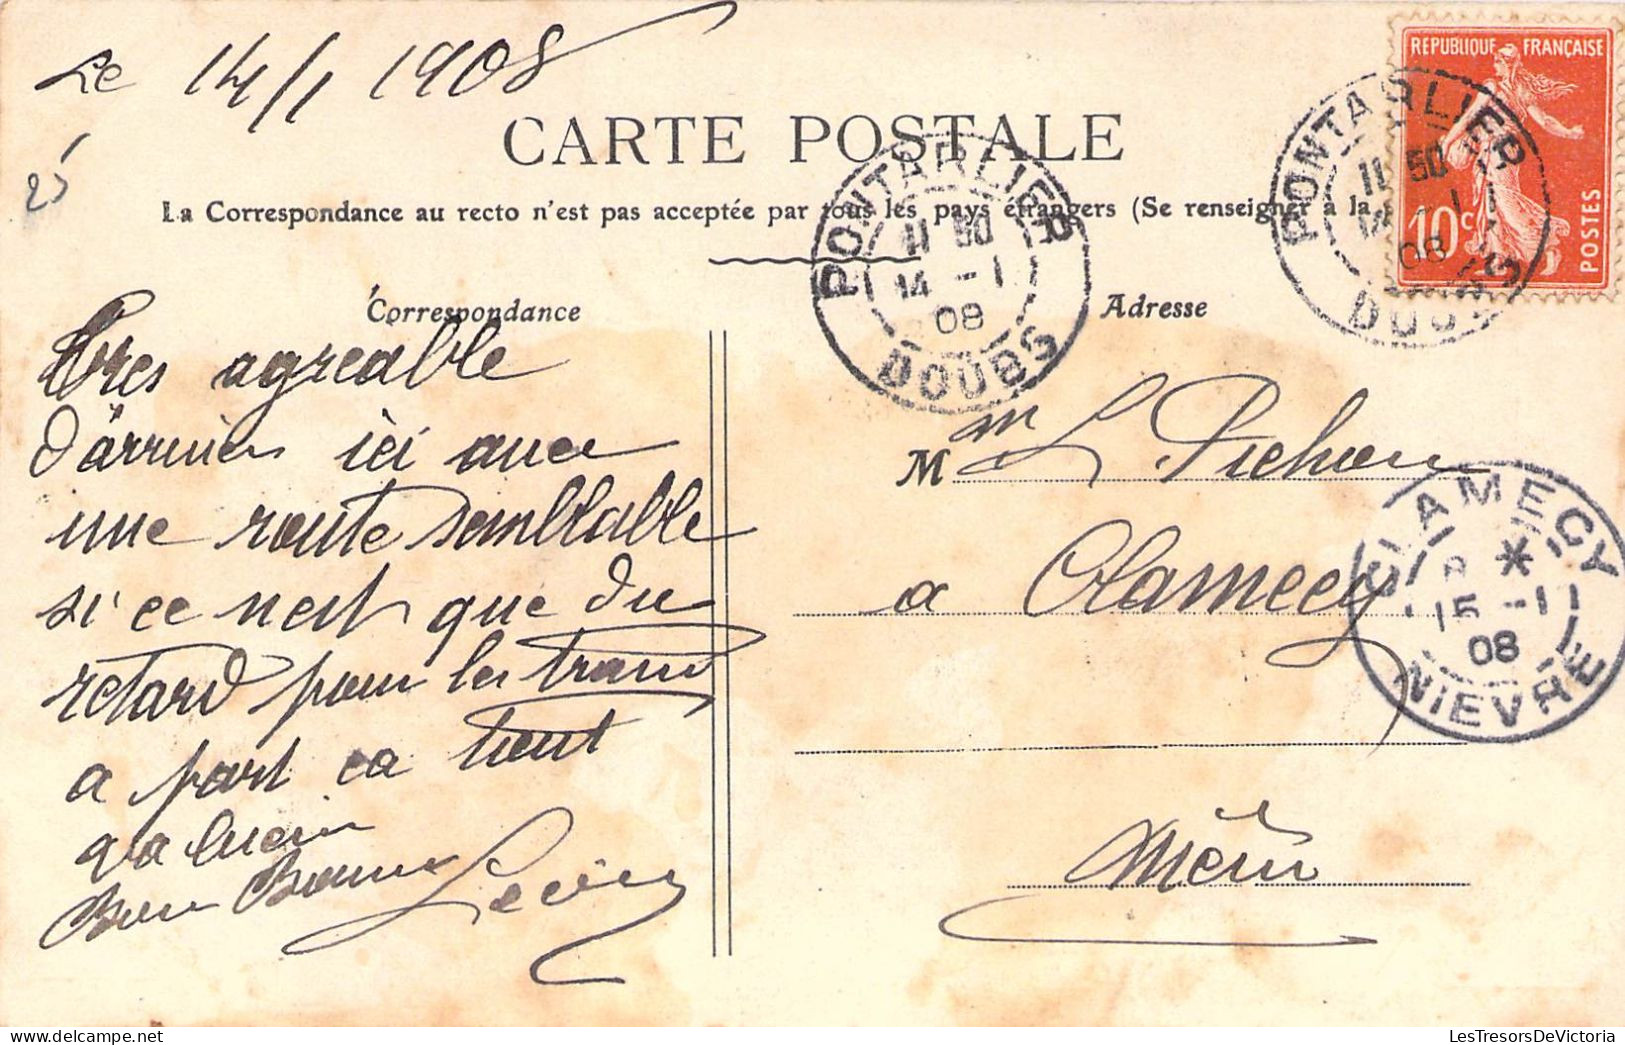 Le 14/1 1908
RÉPUBLIQUE FRANÇAISE
10c
POSTES
CARTE POSTALE
25
La Correspondance au recto n'est pas acceptée par tous les pays étrangers (Se renseigner à la
PONTARLIER
11 50
14 -1
08
DOUBS
PONTARLIER
11 50
14 -1
08
DOUBS
Correspondance
Adresse
Tres agreable
d'arriver ici avec
une route semblable
si ce nest que du
retard pour les trains
a part ca tout
va bien
Bon
M
L Pichon
a Clamecy
Nièvre
CLAMECY
*
15 -1
08
NIEVRE
LesTresorsDeVictoria.com